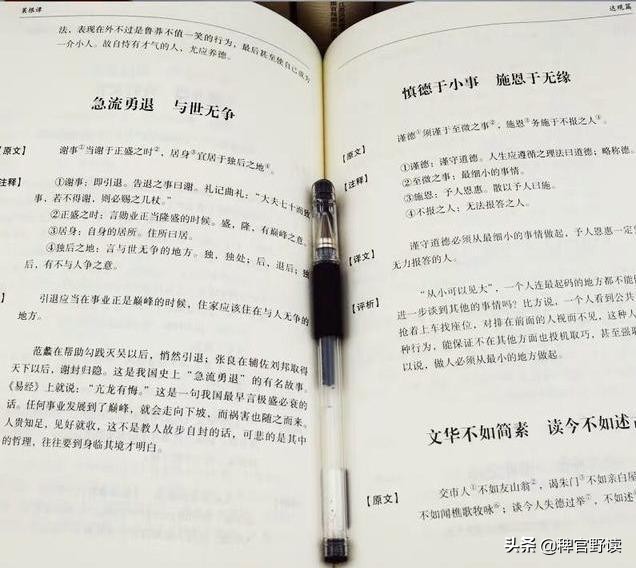 菜根谭
法,表现在外不过是鲁莽不值一笑的行为,最后甚至使自己成为
一介小人。故自恃有才气的人,尤应养德。
急流勇退 与世无争
【原文】 谢事①当谢于正盛之时②,居身③宜居于独后之地④。
注释】 ①谢事:即引退。告退之事曰谢。礼记曲礼:“大夫七十而致
事,若不得谢,则必赐之几杖。”
②正盛之时:言勋业正当隆盛的时候。盛,隆,有巅峰之意。
③居身:自身的居所。住所曰居。
④独后之地:言与世无争的地方。独,独处;后,退后;独
后,有不与人争之意。
】 引退应当在事业正是巅峰的时候,住家应该住在与人无争的
地方。
范蠡在帮助勾践灭吴以后,悄然引退;张良在辅佐刘邦取得
天下以后,谢封归隐。这是我国史上“急流勇退”的有名故事。
《易经》上就说:“亢龙有悔。”这是一句我国最早言极盛必衰的
话。任何事业发展到了巅峰,就会走向下坡,而祸害也随之而来。
人贵知足,见好就收,这不是教人故步自封的话,可悲的是其中
的哲理,往往要到身临其境才明白。
达观篇
慎德于小事 施恩于无缘
【原文】 谨德①须谨于至微之事②,施恩③务施于不报之人④。
【注释】 ①谨德:谨守道德。人生应遵循之理法曰道德;略称德。
②至微之事:最细小的事情。
③施恩:予人恩惠。散以予人曰施。
④不报之人:无法报答之人。
【译文】 谨守道德必须从最细小的事情做起,予人恩惠一定
无力报答的人。
【评析】 “从小可以见大”,一个人连最起码的地方都不能
进一步谈到其他的事情吗?比方说,一个人看到公共
抢着上车找座位,对排在前面的人视而不见,这种人
种行为,能保证不在其他方面也投机取巧,甚至强取
以说,做人必须从最小的地方做起。
文华不如简素 读今不如述
【原文】 交市人①不如友山翁②,谒朱门③不如亲白屋
不如闻樵歌牧咏⑥;谈今人失德过举⑦,不如述
头条 @稗官野读